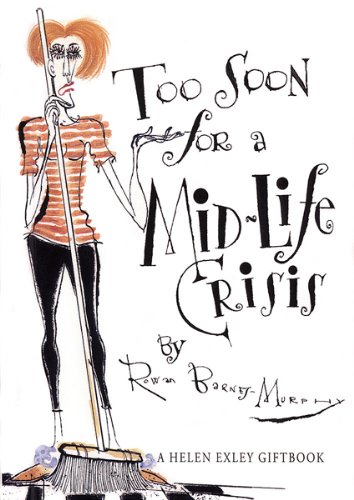 Too Soon
for a
Mid-Life
Crisis
by
Rowan Barnes-Murphy
A HELEN EXLEY GIFTBOOK